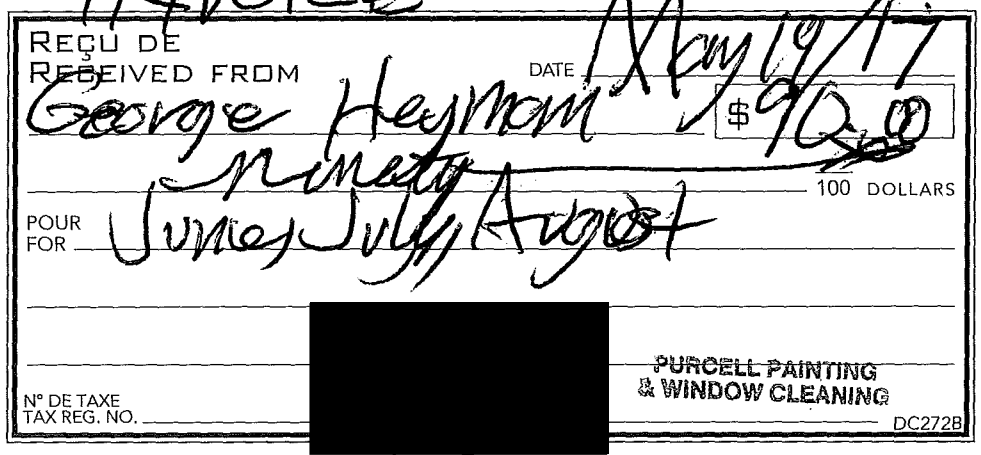 INVOICE
REÇU DE
RECEIVED FROM
DATE May 19/17
George Heyman $ 90.00
ninety 00/100 DOLLARS
POUR
FOR June, July, August
PURCELL PAINTING
& WINDOW CLEANING
N° DE TAXE
TAX REG. NO.
DC272B